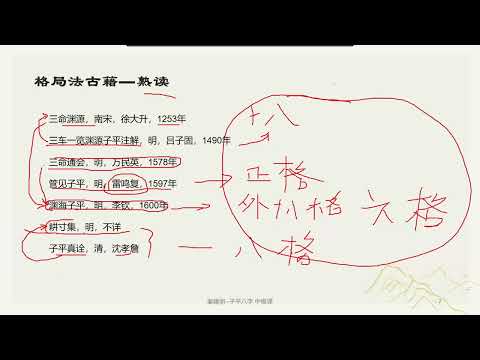 格局法古藉—熟读
三命渊源，南宋，徐大升，1253年
三车一览渊源子平注解，明，吕子固，1490年
三命通会，明，万民英，1578年
管见子平，明，雷鸣复，1597年
渊海子平，明，李钦，1600年
耕寸集，明，不详
子平真诠，清，沈孝詹
十八
正格
外格 六格
八格
子平八字 中级课